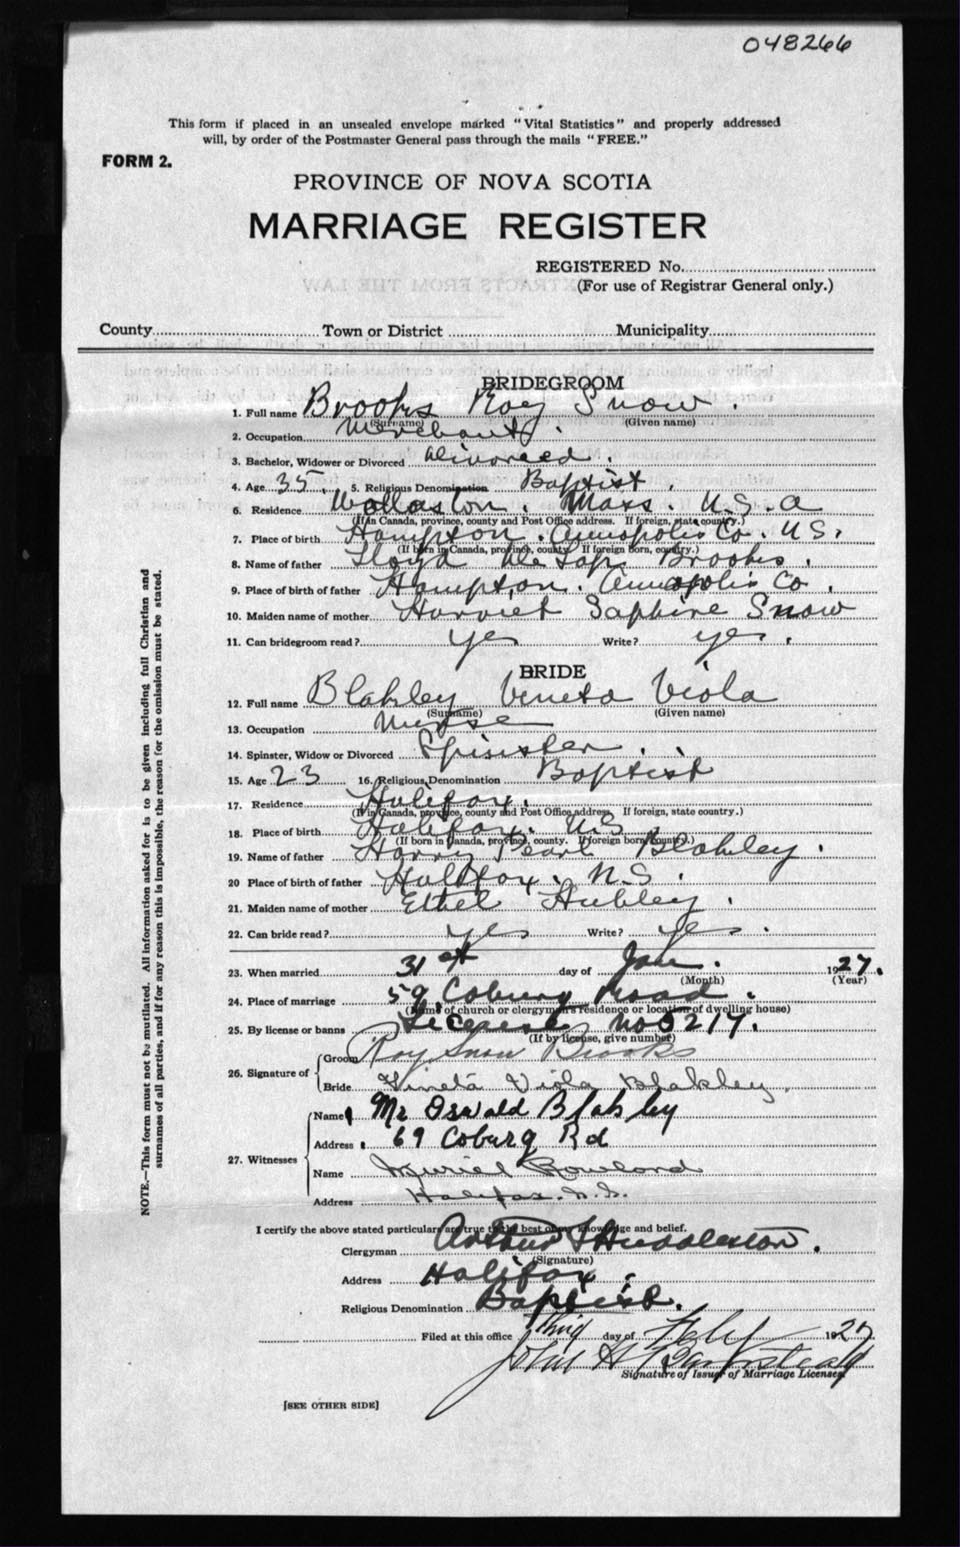 048266
This form if placed in an unsealed envelope marked "Vital Statistics" and properly addressed
will, by order of the Postmaster General pass through the mails "FREE."
FORM 2.
PROVINCE OF NOVA SCOTIA
MARRIAGE REGISTER
REGISTERED No.
(For use of Registrar General only.)
County Town or District Municipality
BRIDEGROOM
1. Full name Brooks Roy Snow.
(Surname) (Given name)
2. Occupation Merchant.
3. Bachelor, Widower or Divorced divorced.
4. Age 35. 5. Religious Denomination Baptist.
6. Residence Wollaston. Mass. U.S.A
(If in Canada, province, county and Post Office address. If foreign, state country.)
7. Place of birth Hampton. Annapolis Co. N.S.
(If born in Canada, province, county. If foreign born, country.)
8. Name of father Lloyd Brooks.
9. Place of birth of father Hampton. Annapolis Co.
10. Maiden name of mother Harriet Saphire Snow
11. Can bridegroom read? yes Write? yes.
BRIDE
12. Full name Blakley Veneta Viola
(Surname) (Given name)
13. Occupation Nurse
14. Spinster, Widow or Divorced Spinister.
15. Age 23 16. Religious Denomination Baptist
17. Residence Halifax.
(If in Canada, province, county and Post Office address. If foreign, state country.)
18. Place of birth Halifax. N.S.
(If born in Canada, province, county. If foreign born, country.)
19. Name of father Harry Pearl Blakley.
20 Place of birth of father Halifax. N.S.
21. Maiden name of mother Ethel Hubley.
22. Can bride read? yes Write? yes.
23. When married 31st day of Jan. 1927.
(Month) (Year)
24. Place of marriage 59 Coburg Road.
(Name of church or clergyman's residence or location of dwelling house)
25. By license or banns License no 5217.
(If by license, give number)
26. Signature of Groom Roy Snow Brooks
Bride Vineta Viola Blakley.
27. Witnesses Name Mr Oswald Blakley
Address 69 Coburg Rd
Name Muriel Rowland
Address Halifax. N.S.
I certify the above stated particulars are true to the best of my knowledge and belief.
Clergyman Arthur Huddleston.
(Signature)
Address Halifax.
Religious Denomination Baptist.
Filed at this office third day of Feby 1927
John H Barnstead
Signature of Issuer of Marriage Licenses
[SEE OTHER SIDE]
NOTE.—This form must not be mutilated. All information asked for is to be given including full Christian and
surnames of all parties, and if for any reason this is impossible, the reason for the omission must be stated.